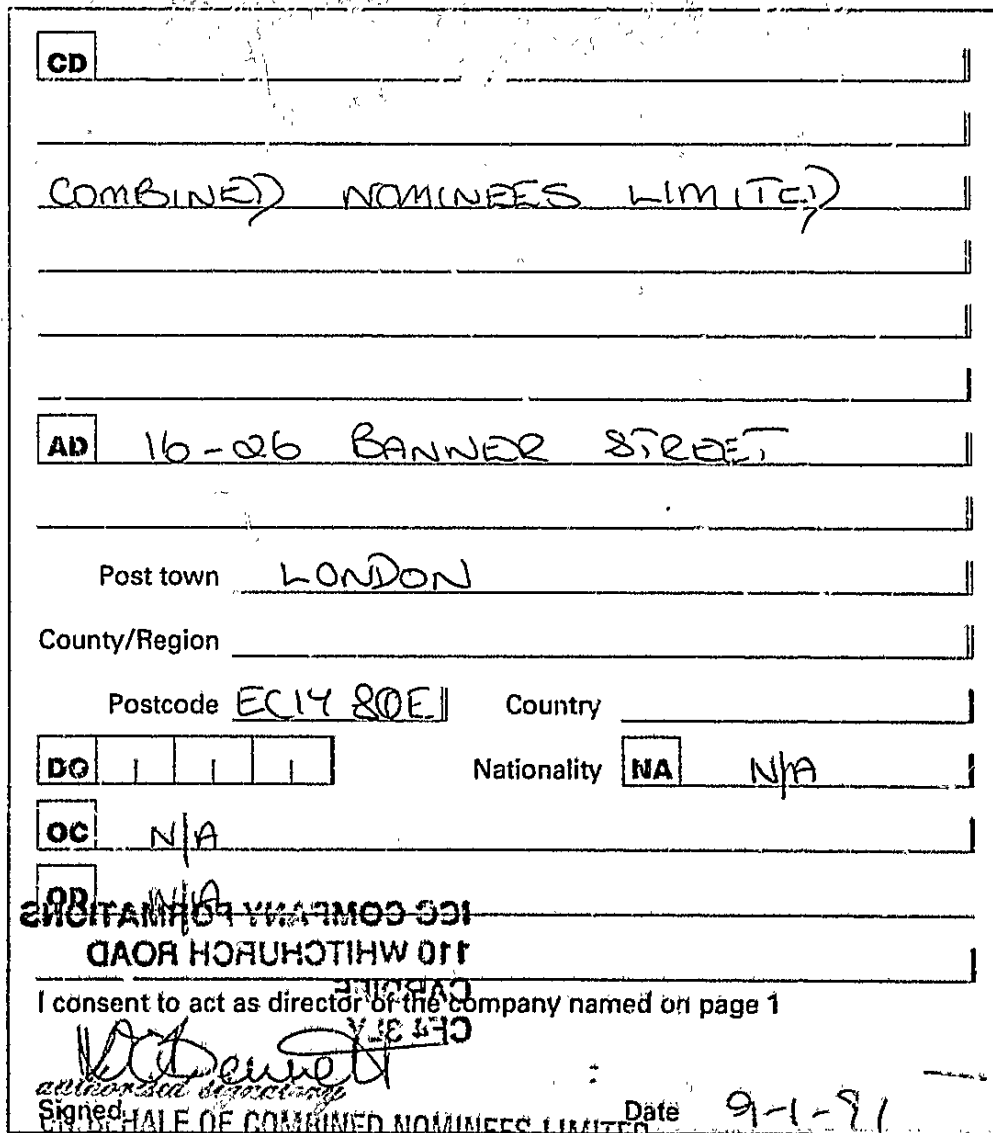 CD
COMBINED NOMINEES LIMITED
AD 16-26 BANNER STREET
Post town LONDON
County/Region
Postcode EC1Y 8QE Country
DO Nationality NA N/A
OC N/A
OD N/A
ICC COMPANY FORMATIONS
110 WHITCHURCH ROAD
CARDIFF
CF4 3LY
I consent to act as director of the company named on page 1
authorised signatory
Signed Date 9-1-91
ON BEHALF OF COMBINED NOMINEES LIMITED